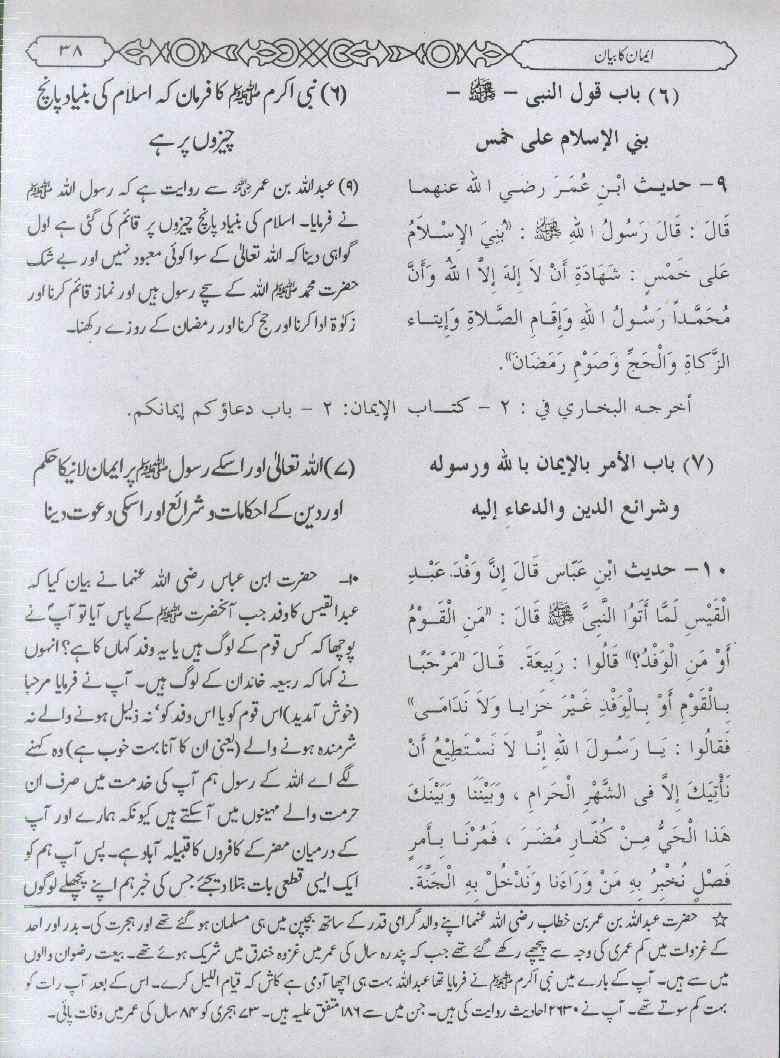 ایمان کا بیان
۳۸
(٦) باب قول النبی - ﷺ -
بني الإسلام على خمس
٩- حديث ابْنِ عُمَرَ رضي الله عنهما
قَالَ : قَالَ رَسُولُ اللهِ ﷺ : «بُنِيَ الإِسْلاَمُ
عَلى خَمْسٍ : شَهَادَةِ أَنْ لاَ إِلهَ إِلاَّ اللهُ وَأَنَّ
مُحَمَّداً رَسُولُ اللهِ وَإِقَامِ الصَّلاَةِ وَإِيتَاء
الزَّكَاةِ وَالْحَجِّ وَصَوْمِ رَمَضَانَ».
(۶) نبی اکرم ﷺ کا فرمان کہ اسلام کی بنیاد پانچ
چیزوں پر ہے
(۹) عبداللہ بن عمر سے روایت ہے کہ رسول اللہ ﷺ
نے فرمایا۔ اسلام کی بنیاد پانچ چیزوں پر قائم کی گئی ہے اول
گواہی دینا کہ اللہ تعالیٰ کے سوا کوئی معبود نہیں اور بے شک
حضرت محمد ﷺ اللہ کے سچے رسول ہیں اور نماز قائم کرنا اور
زکوٰۃ ادا کرنا اور حج کرنا اور رمضان کے روزے رکھنا۔
أخرجه البخاري في : ٢ - كتاب الإيمان: ٢ - باب دعاؤكم إيمانكم.
(٧) باب الأمر بالإيمان بالله ورسوله
وشرائع الدين والدعاءِ إليه
١٠- حديث ابْنِ عَبَّاس قَالَ إِنَّ وَفْدَ عَبْدِ
الْقَيْسِ لَمَّا أَتَوُا النَّبِيَّ ﷺ قَالَ : «مَنِ الْقَوْمُ
أَوْ مَنِ الْوَفْدُ؟» قَالُوا : رَبِيعَةَ. قَالَ «مَرْحَبًا
بِالْقَوْمِ أَوْ بِالْوَفْدِ غَيْرَ خَزَايا وَلاَ نَدَامَى»
فَقالُوا : يَا رَسُولَ اللهِ إِنَّا لاَ نَسْتَطِيعُ أَنْ
نَأْتِيَكَ إِلاَّ فى الشَّهْرِ الْحَرامِ ، وَبَيْنَنَا وَبَيْنَكَ
هَذَا الْحَيُّ مِنْ كُفَّارِ مُضَرَ ، فَمُرْنَا بِأَمرٍ
فَصْلٍ نُخْبِرُ بِهِ مَنْ وَرَاءَنَا وَنَدْخُلْ بِهِ الْجَنَّةَ.
(۷) اللہ تعالیٰ اور اسکے رسول ﷺ پر ایمان لانیکا حکم
اور دین کے احکامات و شرائع اور اسکی دعوت دینا
۱۰۔ حضرت ابن عباس رضی اللہ عنہما نے بیان کیا کہ
عبدالقیس کا وفد جب آنحضرت ﷺ کے پاس آیا تو آپ نے
پوچھا کہ کس قوم کے لوگ ہیں یا یہ وفد کہاں کا ہے؟ انہوں
نے کہا کہ ربیعہ خاندان کے لوگ ہیں۔ آپ نے فرمایا مرحبا
(خوش آمدید) اس قوم کو یا اس وفد کو‘ نہ ذلیل ہونے والے نہ
شرمندہ ہونے والے (یعنی ان کا آنا بہت خوب ہے) وہ کہنے
لگے اے اللہ کے رسول ہم آپ کی خدمت میں صرف ان
حرمت والے مہینوں میں آ سکتے ہیں کیونکہ ہمارے اور آپ
کے درمیان مضر کے کافروں کا قبیلہ آباد ہے۔ پس آپ ہم کو
ایک ایسی قطعی بات بتلا دیجئے جس کی خبر ہم اپنے پچھلے لوگوں
☆ حضرت عبداللہ بن عمر بن خطاب رضی اللہ عنہما اپنے والد گرامی قدر کے ساتھ بچپن میں ہی مسلمان ہو گئے تھے اور ہجرت کی۔ بدر اور احد
کے غزوات میں کم عمری کی وجہ سے پیچھے رکھے گئے تھے جب کہ پندرہ سال کی عمر میں غزوہ خندق میں شریک ہوئے تھے۔ بیعت رضوان والوں
میں سے ہیں۔ آپ کے بارے میں نبی اکرم ﷺ نے فرمایا تھا عبداللہ بہت ہی اچھا آدمی ہے کاش کہ قیام اللیل کرے۔ اس کے بعد آپ رات کو
بہت کم سوتے تھے۔ آپ نے ۲۶۳۰ احادیث روایت کی ہیں۔ جن میں سے ۱۸۶ متفق علیہ ہیں۔ ۷۳ ہجری کو ۸۴ سال کی عمر میں وفات پائی۔